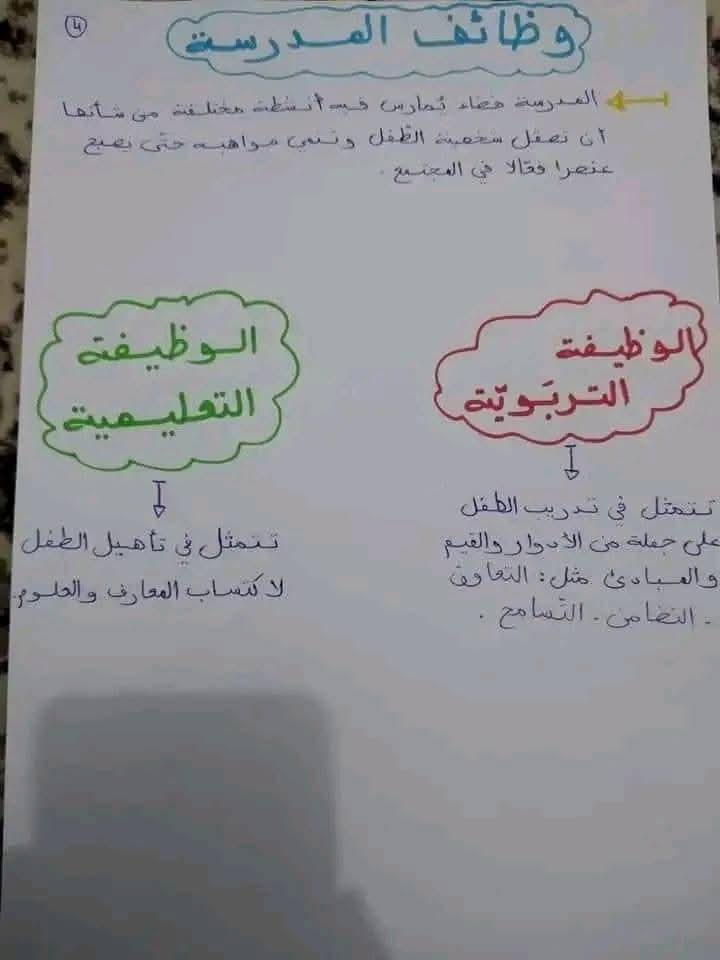 4
وظائف المدرسة
المدرسة فضاء تُمارس فيه أنشطة مختلفة من شأنها
أن تصقل شخصية الطّفل وتنمي مواهبه حتّى يصبح
عنصرا فعّالا في المجتمع .
الوظيفة
التربَويّة
تتمثل في تدريب الطفل
على جملة من الأدوار والقيم
والمبادئ مثل: التعاون
. التضامن . التّسامح .
الوظيفة
التعليمية
تتمثل في تأهيل الطفل
لاكتساب المعارف والعلوم.